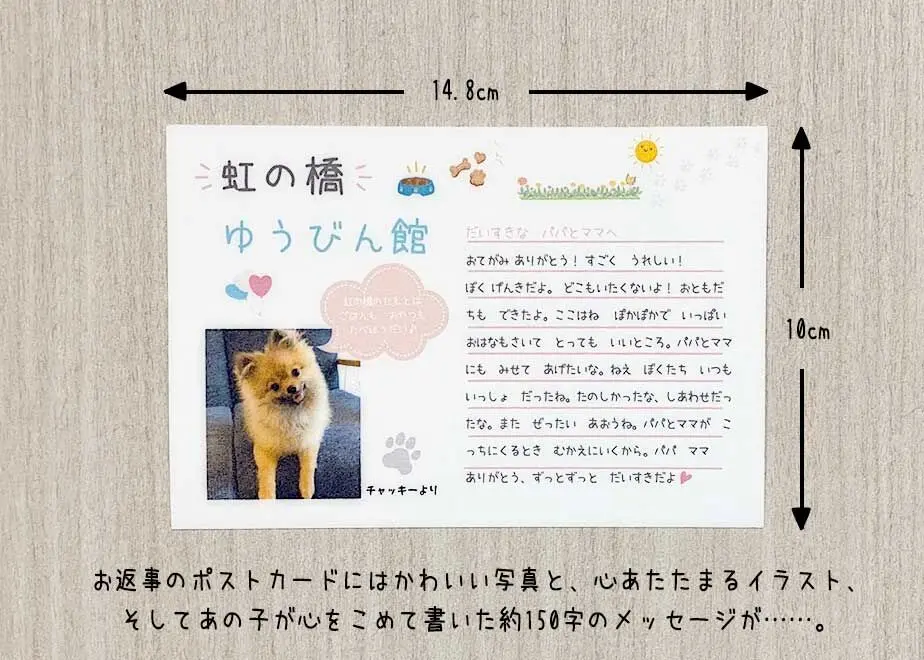 14.8cm
10cm
虹の橋
ゆうびん館
虹の橋のたもとは
ごはんも おやつも
たべほうだい♪
チャッキーより
だいすきな パパとママへ
おてがみ ありがとう! すごく うれしい!
ぼく げんきだよ。 どこもいたくないよ! おともだ
ちも できたよ。ここはね ぽかぽかで いっぱい
おはなもさいて とっても いいところ。パパとママ
にも みせて あげたいな。ねえ ぼくたち いつも
いっしょ だったね。たのしかったな、しあわせだっ
たな。また ぜったい あおうね。パパとママが こ
っちにくるとき むかえにいくから。パパ ママ
ありがとう、ずっとずっと だいすきだよ
お返事のポストカードにはかわいい写真と、心あたたまるイラスト、
そしてあの子が心をこめて書いた約150字のメッセージが……。